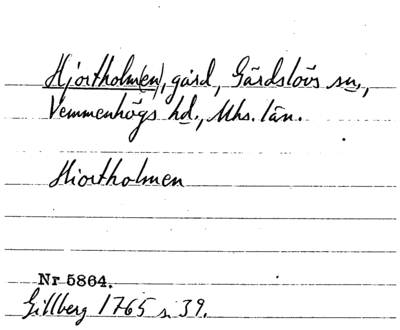 Hjortholm(en), gård, Gärdslövs sn.,
Vemmenhögs hd., Mhs. län.
Hiortholmen
Nr 5864.
Gillberg 1765 s. 39.